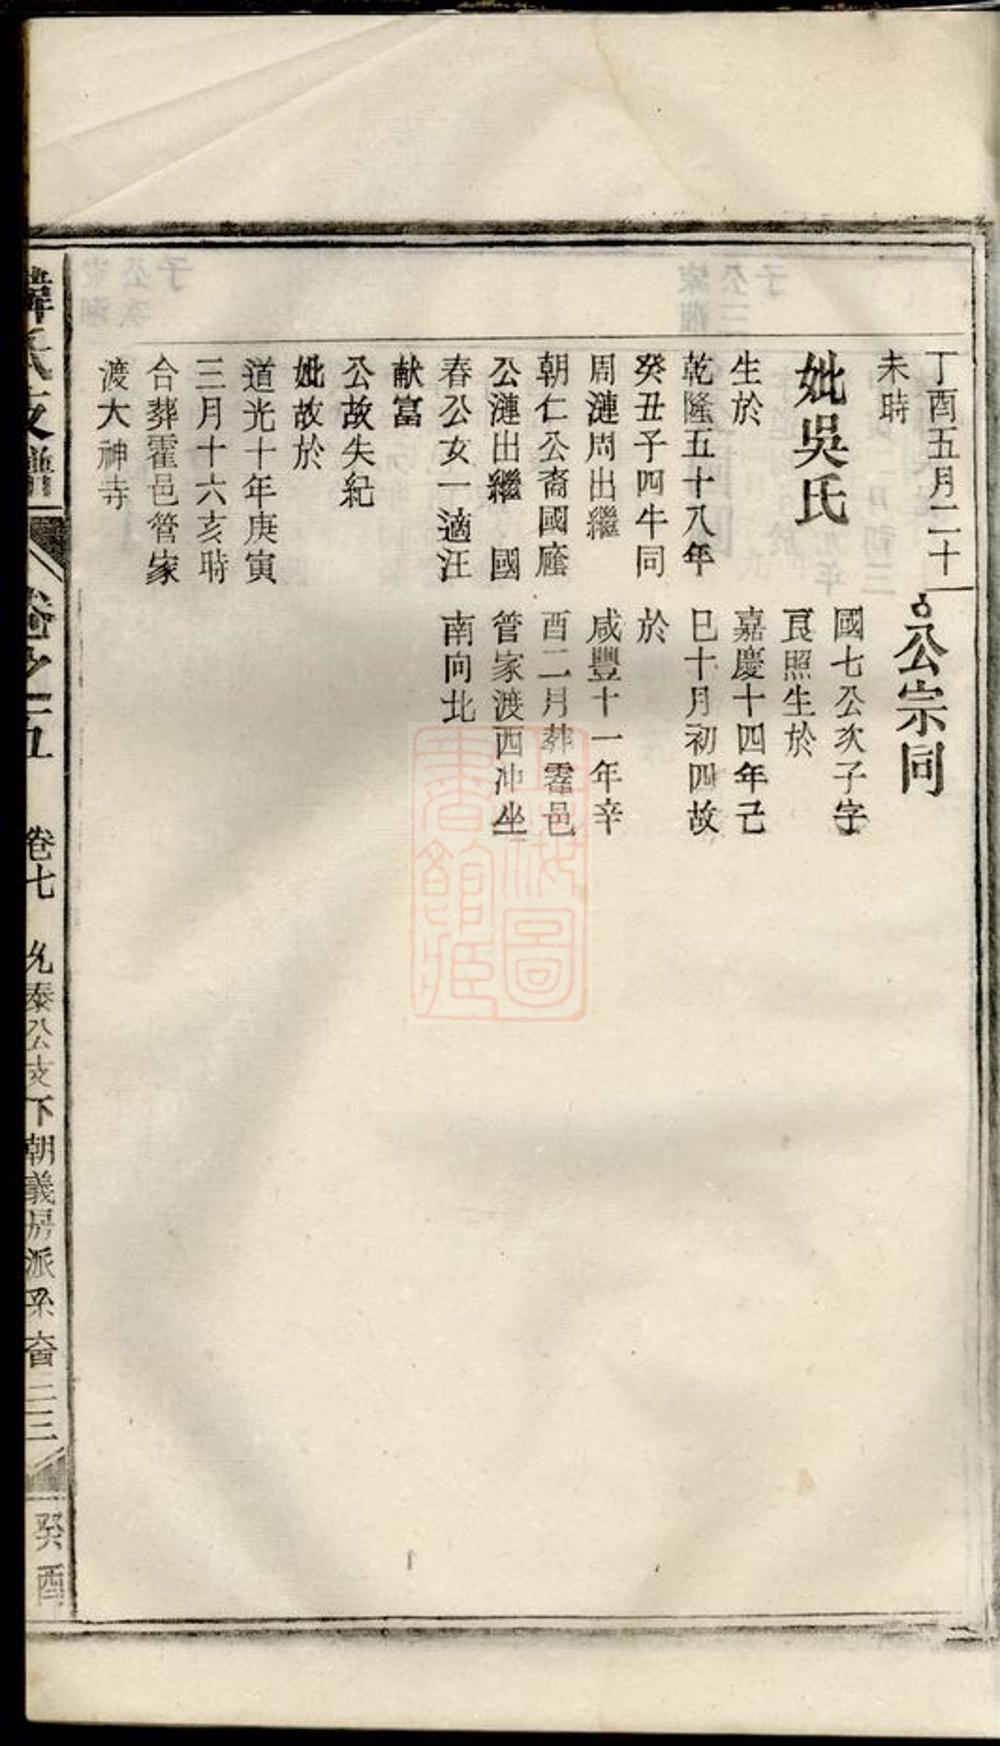 丁酉五月二十
未時
妣吳氏
生於
乾隆五十八年
癸丑子四牛同
周漣周出繼
朝仁公裔國廕
公漣出繼　國
春公女一適汪
献富
公故失紀
妣故於
道光十年庚寅
三月十六亥時
合葬霍邑管家
渡大神寺
公宗同
國七公次子字
良照生於
嘉慶十四年己
巳十月初四故
於
咸豐十一年辛
酉二月葬霍邑
管家渡西冲坐
南向北
氏支譜
卷之五
卷七
允泰公支下朝義房派系
癸酉
上海圖書館藏